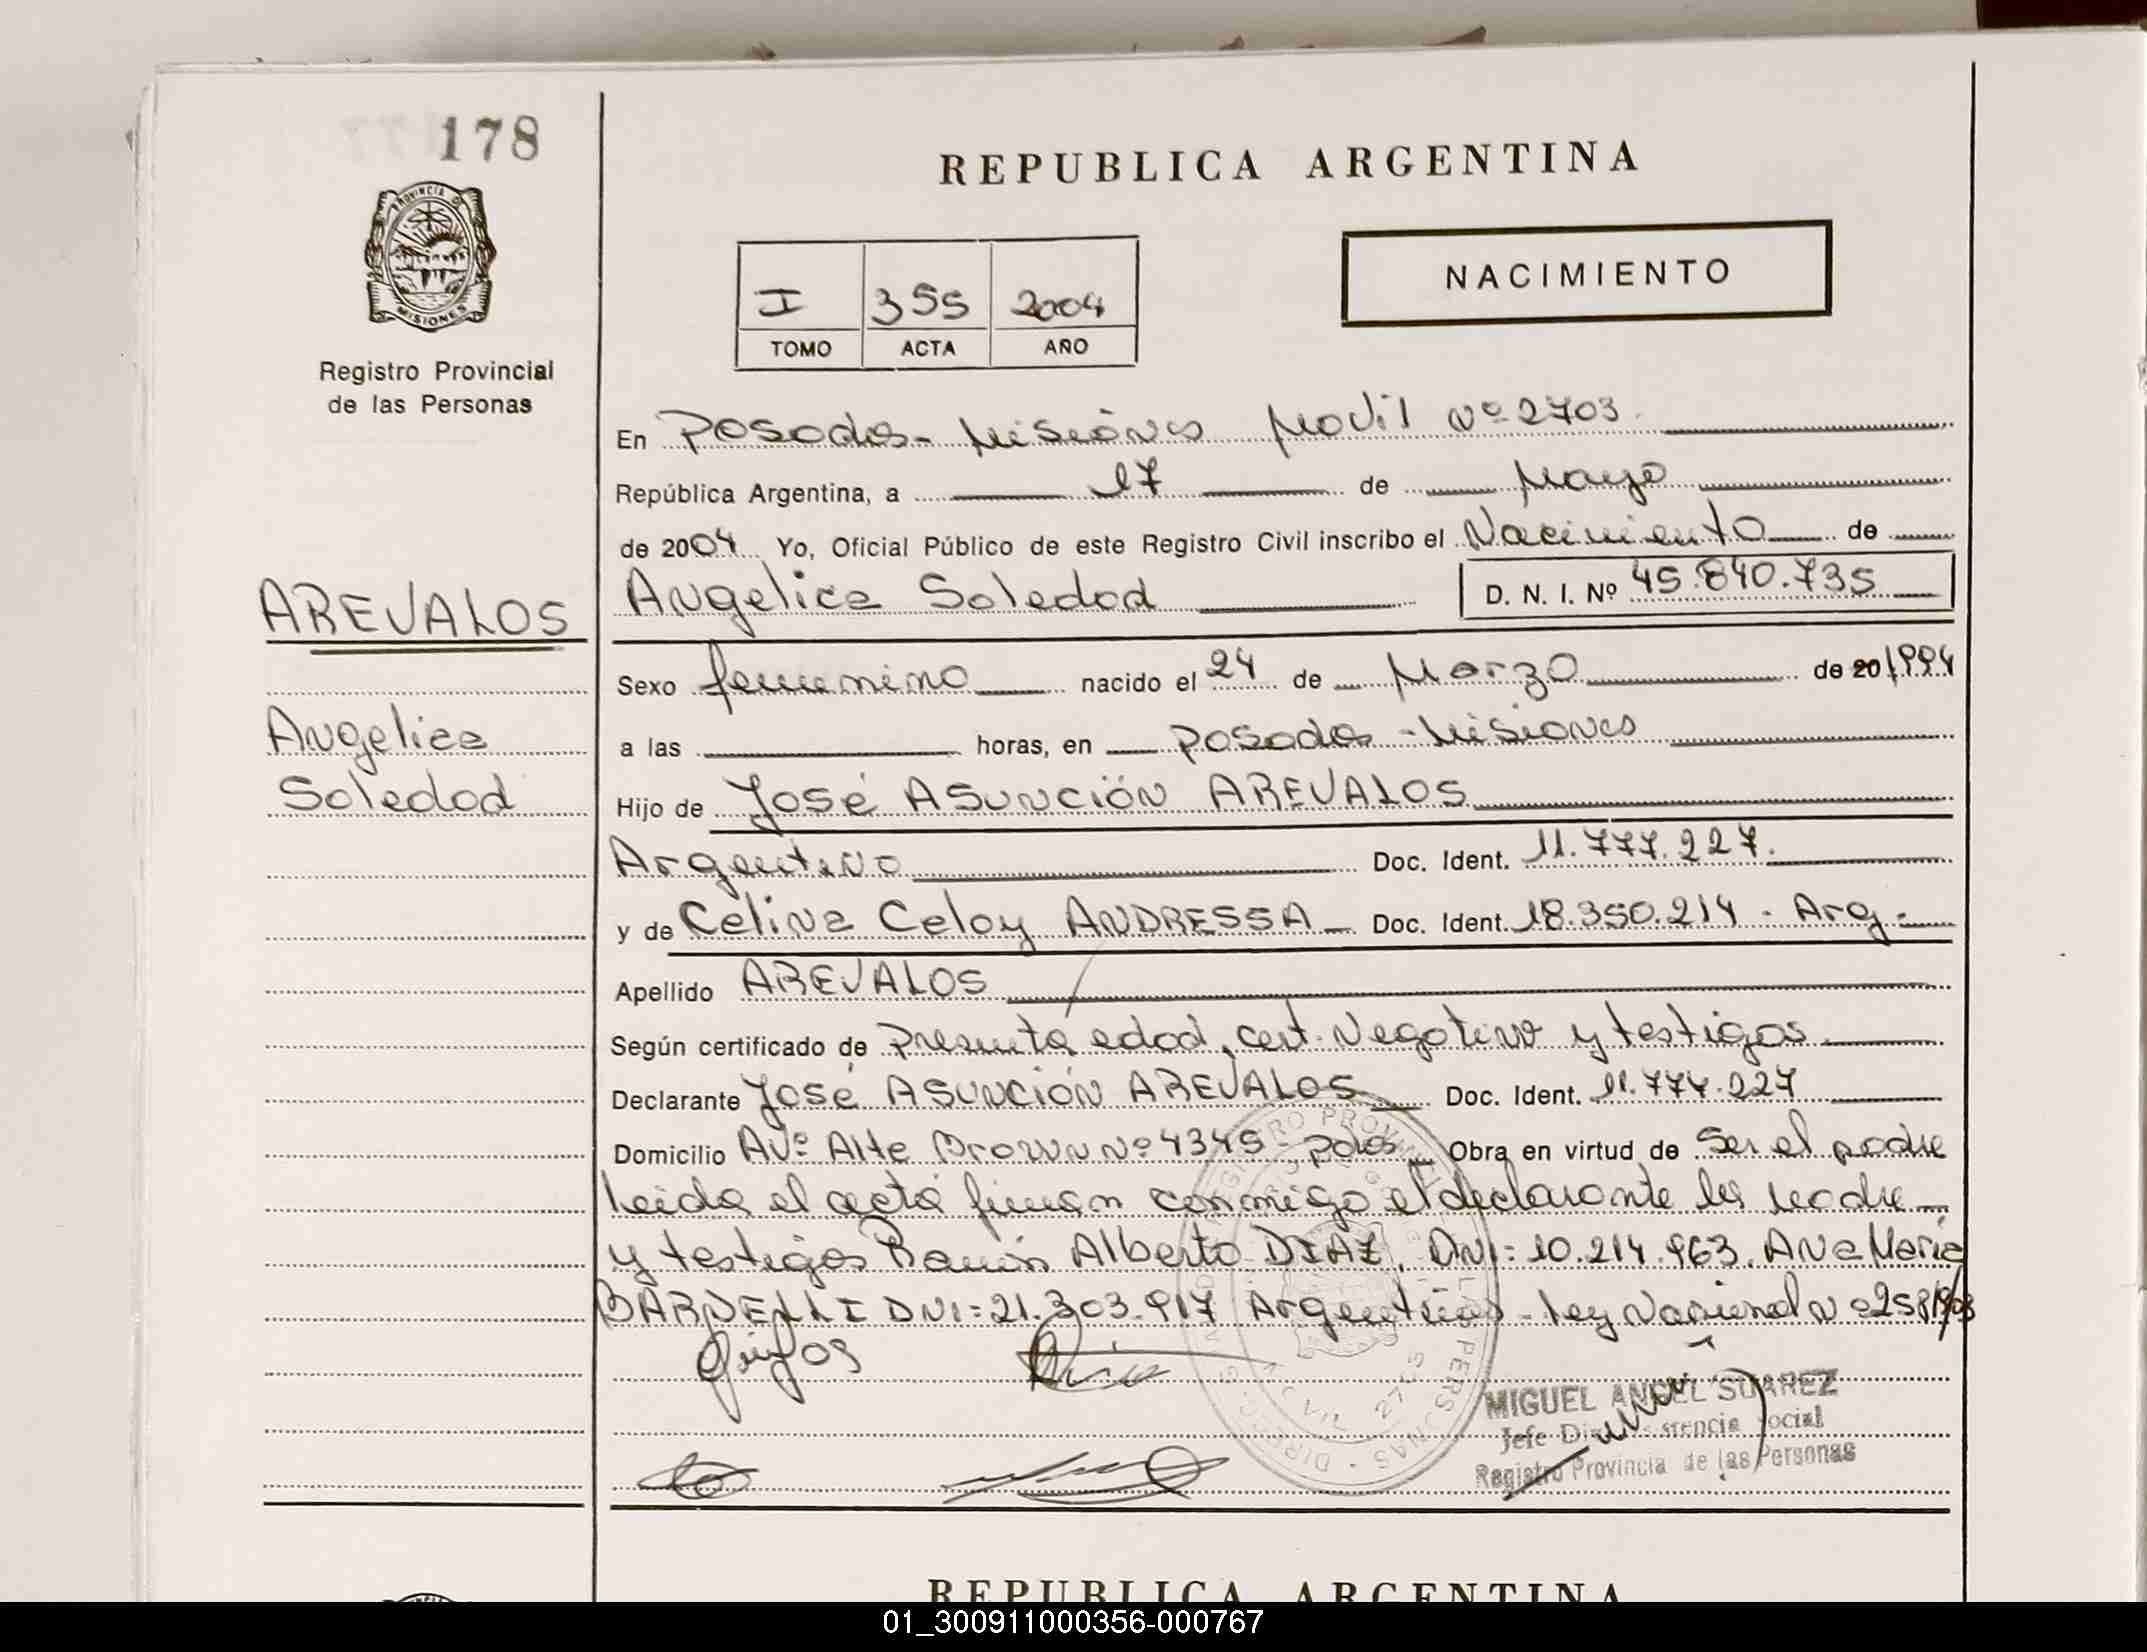 178
PROVINCIA DE
MISIONES
Registro Provincial
de las Personas
REPUBLICA ARGENTINA
I 355 2004
TOMO ACTA AÑO
NACIMIENTO
En Posadas - Misiones Movil Nº 2703
República Argentina, a 17 de Mayo
de 2004 Yo, Oficial Público de este Registro Civil inscribo el Nacimiento de
AREVALOS
Angelica Soledad D. N. I. Nº 45.840.735
Sexo femenino nacido el 24 de Marzo de 20 1994
Angelica
a las horas, en Posadas - Misiones
Soledad
Hijo de José ASUNCIÓN AREVALOS
Argentino Doc. Ident. 11.777.227.
y de Celina Celoy ANDRESSA Doc. Ident. 18.350.214 - Arg -
Apellido AREVALOS
Según certificado de Presunta edad, cert. Negativo y testigos
Declarante José ASUNCIÓN AREVALOS Doc. Ident. 11.777.227
Domicilio Avº Alte Brown Nº 4345 - pdas Obra en virtud de Ser el padre
Leida el acta firman conmigo el declarante la madre
y testigos Ramón Alberto DIAZ, DNI: 10.214.963. Ana Maria
BARDELLI DNI = 21.303.917 Argentinos - Ley Nacional Nº 25819/03
MIGUEL ANGEL SUAREZ
Jefe Social
Registro Provincia de las Personas
REPUBLICA ARGENTINA
01_300911000356-000767